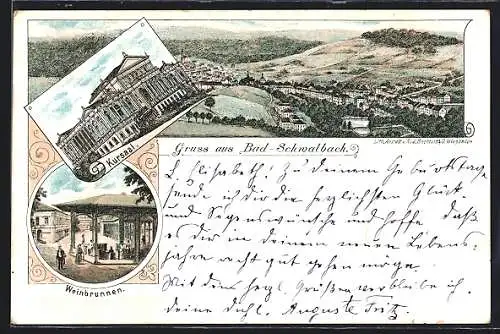 Kursaal.
Gruss aus Bad-Schwalbach.
Weinbrunnen.
L. Elisabeth! Zu deinem Geburtstage
sende ich dir die herzlichsten Glück
und Segenswünsche und hoffe, daß
es dir in deinem neuen Lebens-
jahre recht gut gehen möge.
Mit den herzl. Grüßen verbleibe ich
deine dchl. Auguste Fritz.